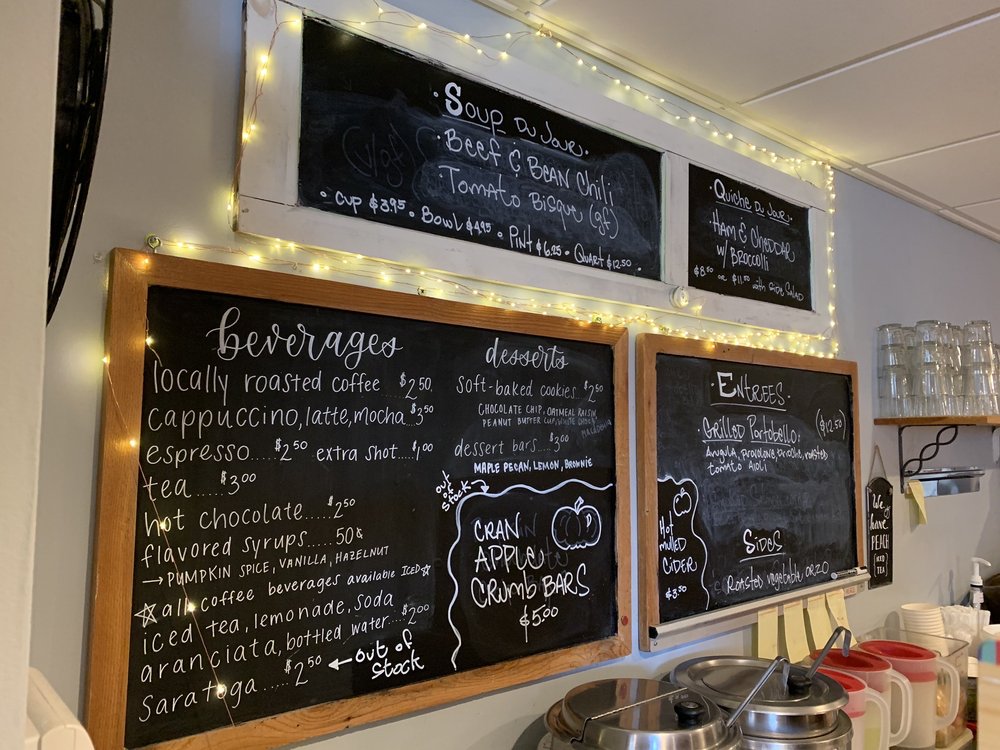 (v/gf)
· Soup Du Jour ·
· Beef & Bean Chili
· Tomato Bisque (gf)
• Cup $3.95 • Bowl $4.95 • Pint $6.25 • Quart $12.50 •
Quiche Du Jour
· Ham & Cheddar
w/ Broccolli
$8.50 or $11.50 with side salad
beverages
locally roasted coffee $2.50
cappuccino, latte, mocha..$3.50
espresso.....$2.50 extra shot....$1.00
tea.....$3.00
hot chocolate.....$2.50
flavored syrups.....50¢
→ PUMPKIN SPICE, VANILLA, HAZELNUT
☆ all coffee beverages available ICED ☆
iced tea, lemonade, soda
aranciata, bottled water....$2.00
Saratoga.....$2.50 ← out of
stock
desserts
soft-baked cookies..$2.50
CHOCOLATE CHIP, OATMEAL RAISIN,
PEANUT BUTTER CUP, WHITE CHOC
MACADAMIA
dessert bars...$3.00
MAPLE PECAN, LEMON, BROWNIE
out of
stock
CRAN
APPLE
CRUMB BARS
$5.00
· Entrees ·
· Grilled Portobello · ($12.50)
Arugula, provolone, brioche, roasted
tomato aioli
Hot
mulled
CIDER
$3.50
Sides
Roasted vegetable orzo
We
have
PEACH
ICED
TEA